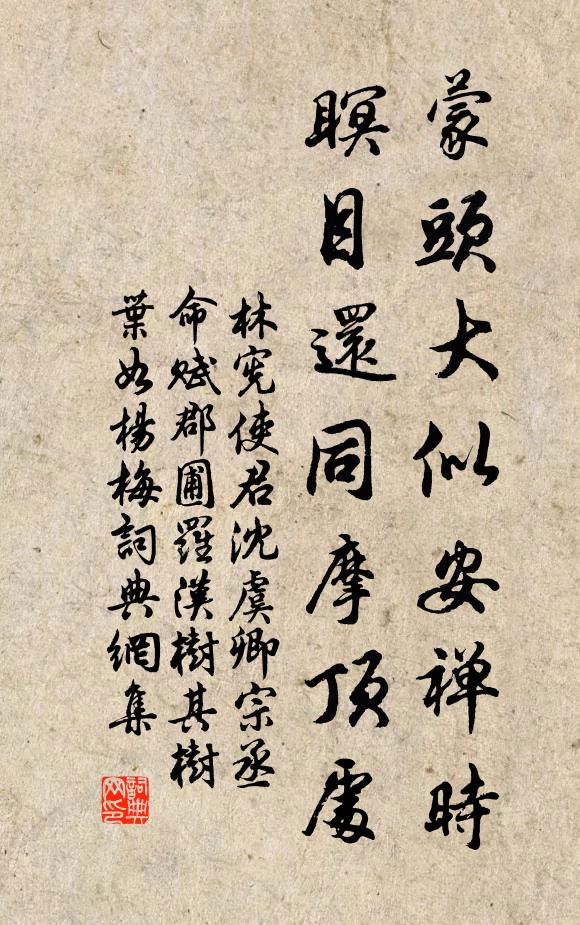 蒙頭大似安禪時
瞑目還同摩頂處
林憲使君沈虞卿宗丞
命賦郡圃羅漢樹其樹
葉如楊梅詞典網集
詞典網印